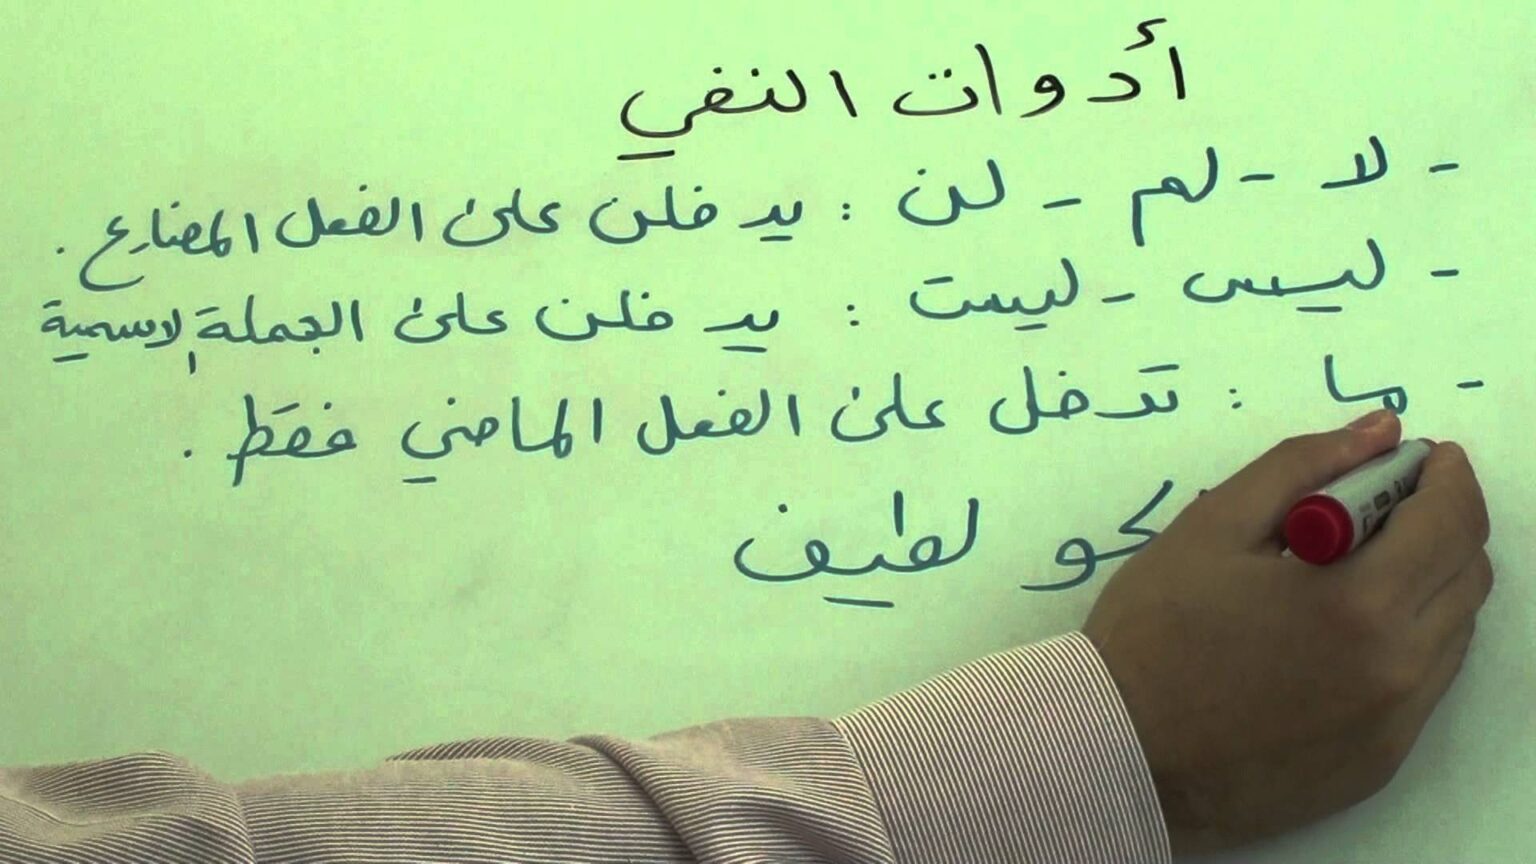 أدوات النفي
- لا - لم - لن : يدخلن على الفعل المضارع .
- ليس - ليست : يدخلن على الجملة الاسمية
- ما : تدخل على الفعل الماضي فقط .
لطيف